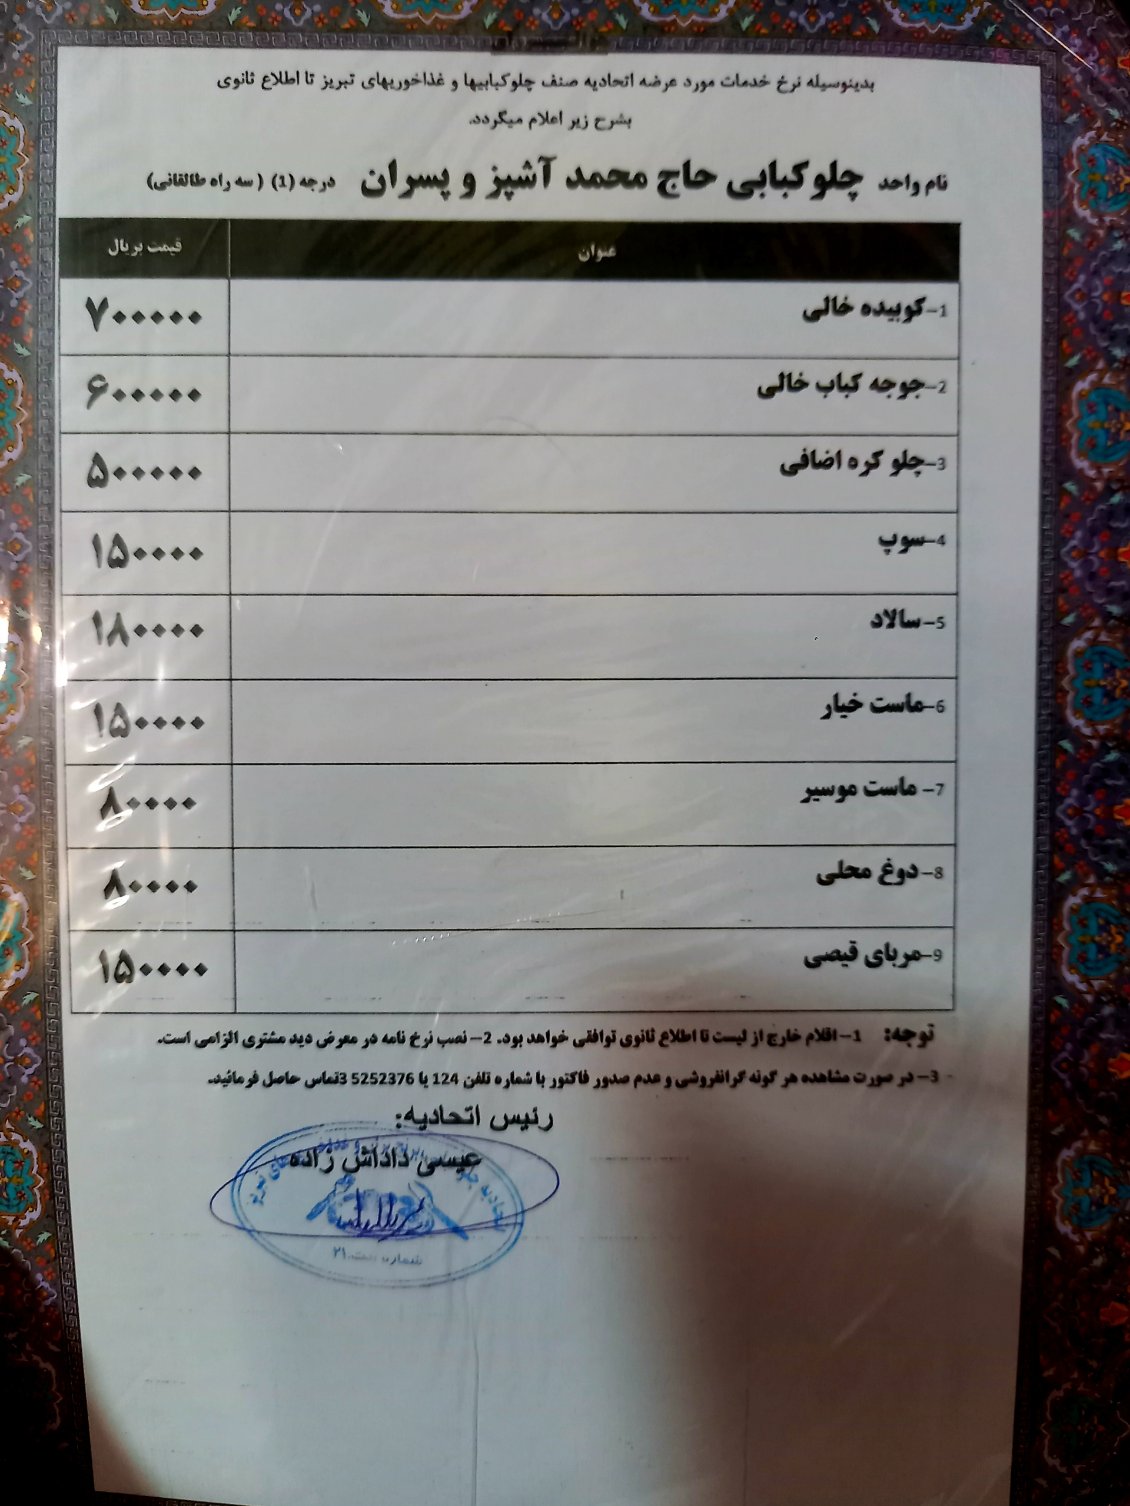 بدینوسیله نرخ خدمات مورد عرضه اتحادیه صنف چلوکبابیها و غذاخوریهای تبریز تا اطلاع ثانوی
بشرح زیر اعلام میگردد.
نام واحد چلوکبابی حاج محمد آشپز و پسران درجه (1) ( سه راه طالقانی)
عنوان قیمت بریال
1-کوبیده خالی ۷۰۰۰۰۰
2-جوجه کباب خالی ۶۰۰۰۰۰
3-چلو کره اضافی ۵۰۰۰۰۰
4-سوپ ۱۵۰۰۰۰
5-سالاد ۱۸۰۰۰۰
6-ماست خیار ۱۵۰۰۰۰
7- ماست موسیر ۸۰۰۰۰
8- دوغ محلی ۸۰۰۰۰
9-مربای قیصی ۱۵۰۰۰۰
توجه: 1- اقلام خارج از لیست تا اطلاع ثانوی توافقی خواهد بود. 2- نصب نرخ نامه در معرض دید مشتری الزامی است.
3- در صورت مشاهده هر گونه گرانفروشی و عدم صدور فاکتور با شماره تلفن 124 یا 5252376 3تماس حاصل فرمائید.
رئیس اتحادیه:
عیسی داداش زاده